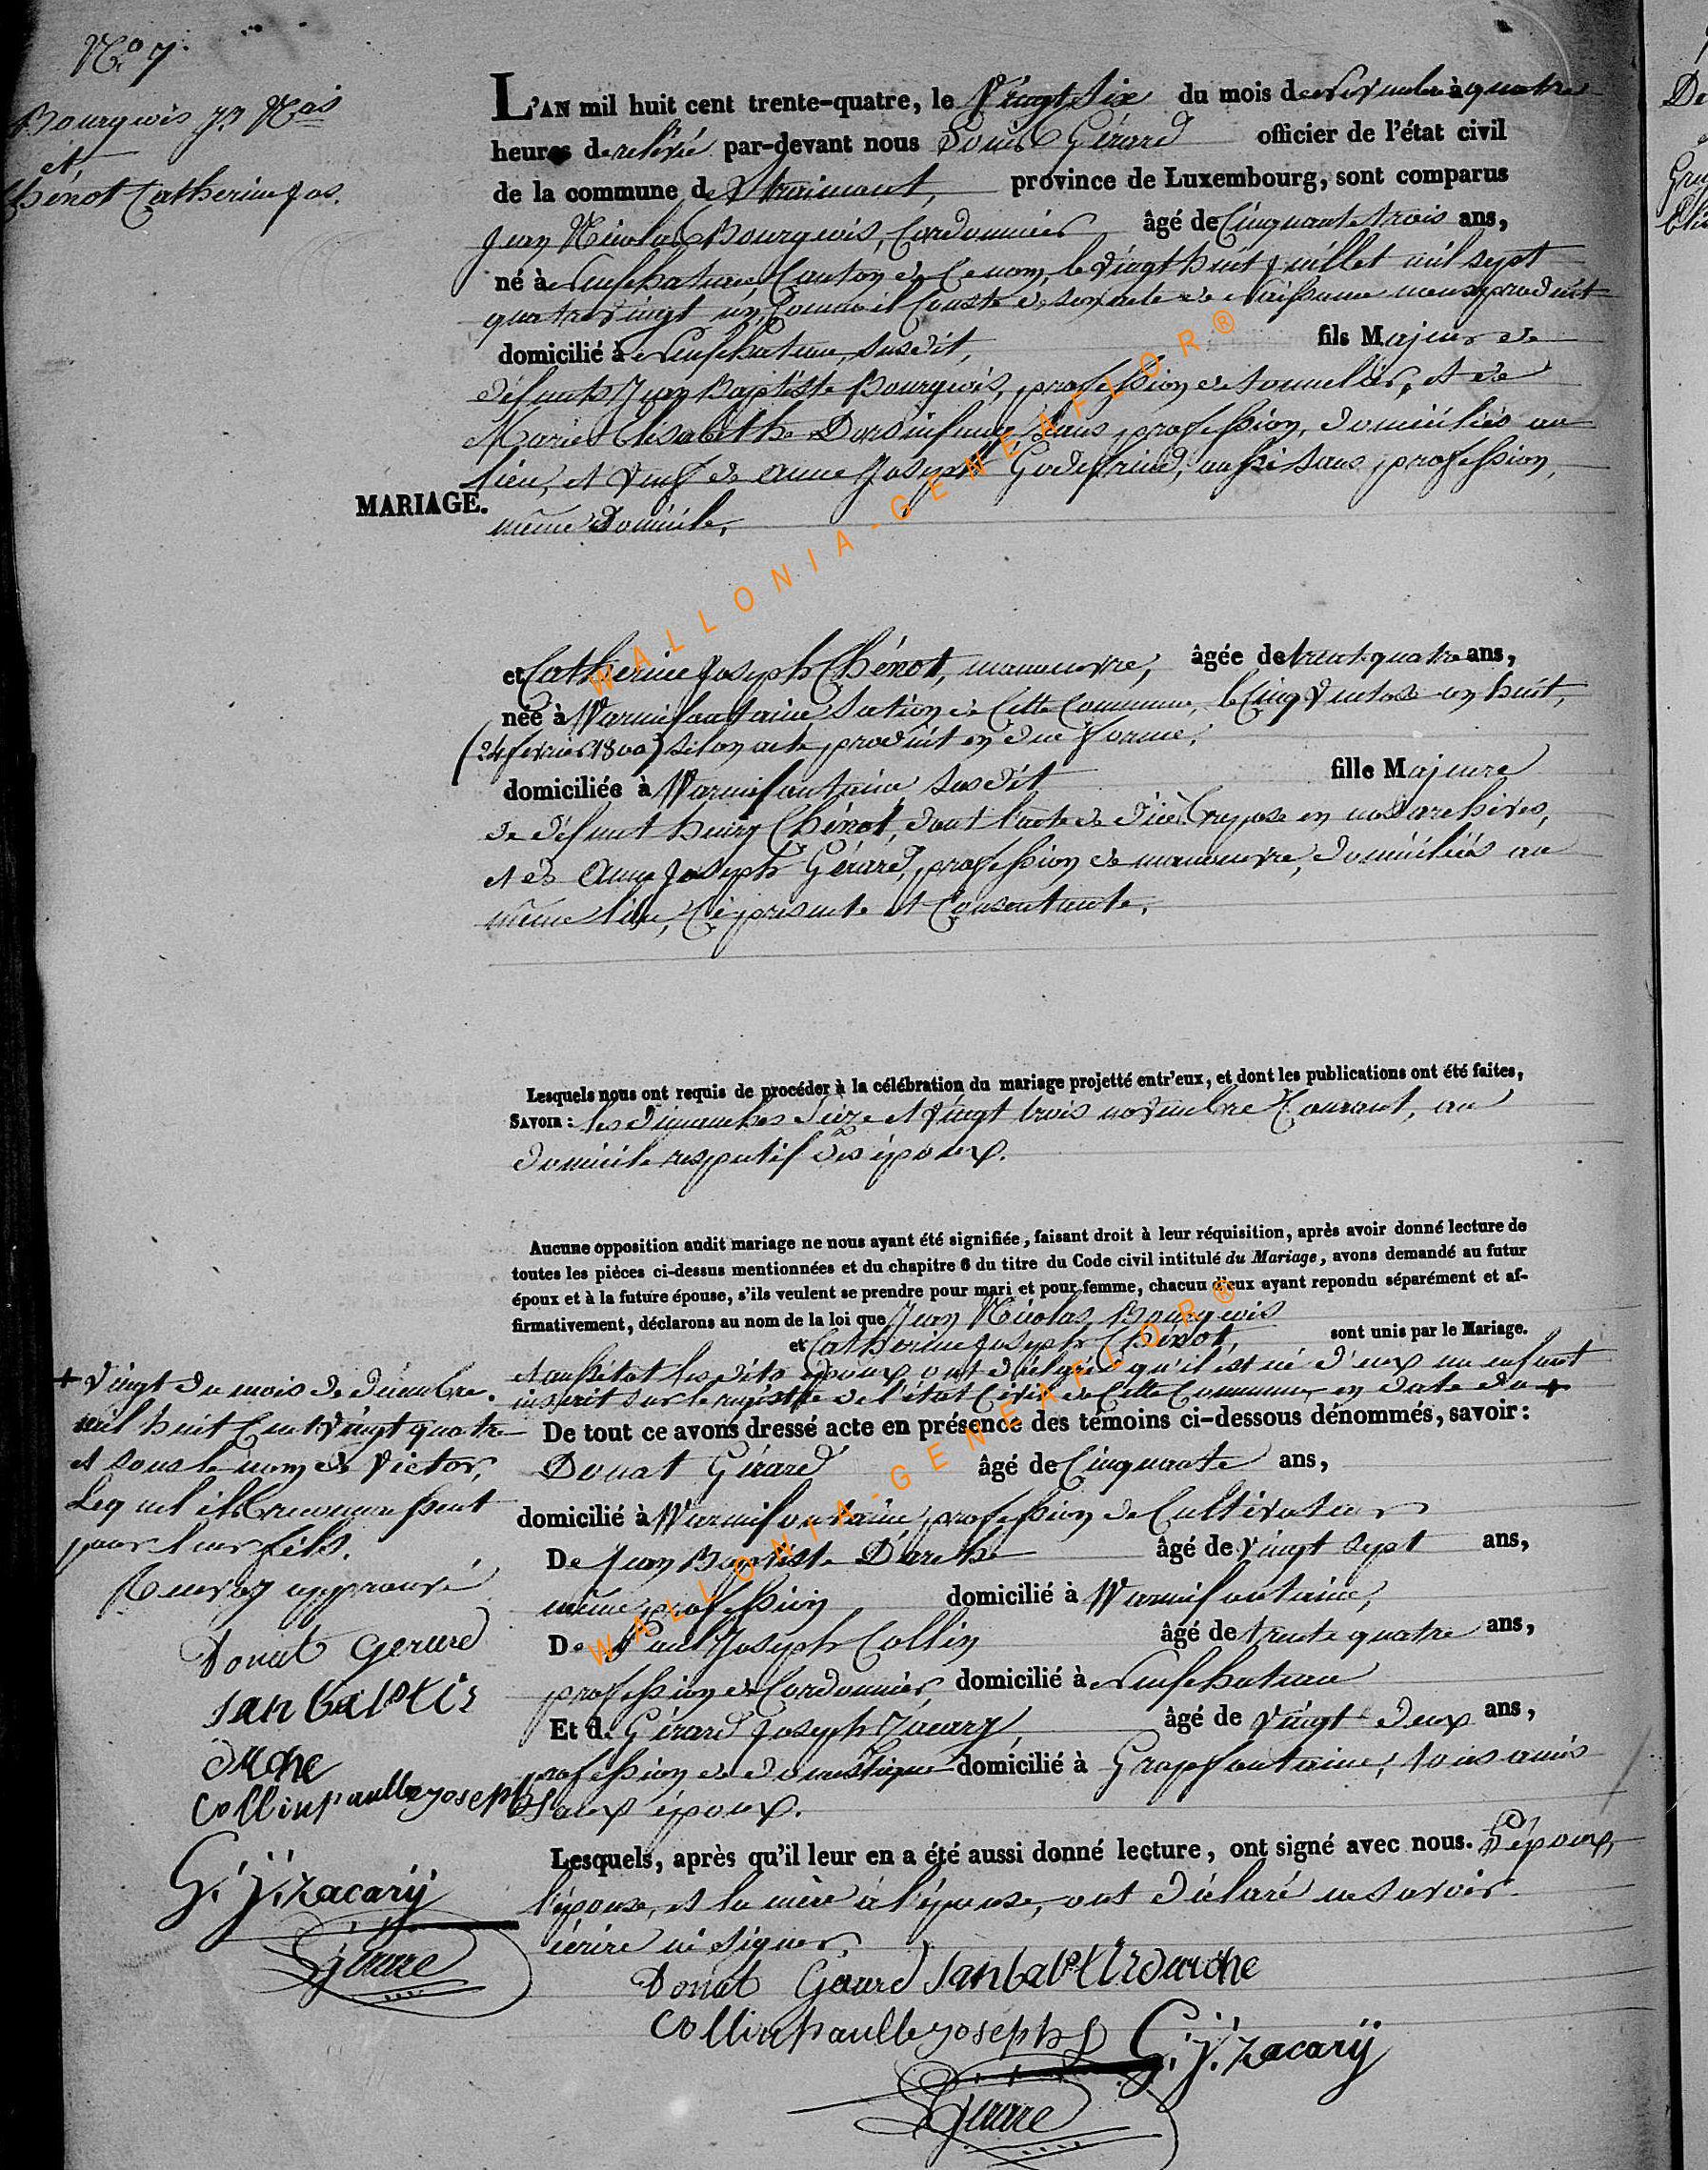 N.o 7.
Bourgeois Jn Nas
et
Chénot Catherine Jos.
L'AN mil huit cent trente-quatre, le Vingt Six du mois de Novembre à quatre
heures de relévé par-devant nous Louis Gérard officier de l'état civil
de la commune de Straimont, province de Luxembourg, sont comparus
Jean Nicolas Bourgeois, Cordonnier âgé de Cinquante trois ans,
né à Neufchateau, Canton de Ce nom, le vingt huit juillet mil sept
quatre vingt un, Comme il Conste de son acte de Naissance nous produit
domicilié à Neufchateau, susdit, fils Majeur de
défunts Jean Baptiste Bourgeois, profession de tonnelier, et de
Marie Elisabethe sans profession, domiciliés au
lieu, et Veuf de Anne Joseph Godefrind, aussi sans profession,
MARIAGE.
même Domicile,
et Catherine Joseph Chénot, manoeuvre, âgée de trente quatre ans,
née à Warmifontaine, Section de Cette Commune, le Cinq Ventose an huit,
(24 fevrier 1800) selon acte produit en due forme,
domiciliée à Warmifontaine susdit fille Majeure
de défunt henry Chénot, dont l'acte de décès repose en nos archives,
et de Anne Joseph Gérard, profession de manoeuvre, domiciliés au
même lieu, Ci présente et Consentante,
Lesquels nous ont requis de procéder à la célébration du mariage projetté entr'eux, et dont les publications ont été faites,
SAVOIR : les dimanches Seize et Vingt trois novembre Courant, au
domicile respectif des époux.
Aucune opposition audit mariage ne nous ayant été signifiée, faisant droit à leur réquisition, après avoir donné lecture de
toutes les pièces ci-dessus mentionnées et du chapitre 6 du titre du Code civil intitulé du Mariage, avons demandé au futur
époux et à la future épouse, s'ils veulent se prendre pour mari et pour femme, chacun d'eux ayant repondu séparément et af-
firmativement, déclarons au nom de la loi que Jean Nicolas Bourgeois
et Catherine Joseph Chénot, sont unis par le Mariage.
et aussitot les dits époux ont déclaré qu'il est né d'eux un enfant
inscrit sur le registre de l'état Civil de Cette Commune, en date du +
+ Vingt du mois de décembre.
mil huit Cent vingt quatre
et sous le nom de Victor,
Lequel ils reconnaissent
pour leur fils.
Renvoy approuvé
Donat Gerard
Jan baptis
darche
Collin paulle joseph
G. J. Zacarÿ
LGerard
De tout ce avons dressé acte en présence des témoins ci-dessous dénommés, savoir :
Donat Gérard âgé de Cinquante ans,
domicilié à Warmifontaine, profession de Cultivateur
De Jean Baptiste Darche âgé de Vingt sept ans,
même profession domicilié à Warmifontaine,
De Paul Joseph Collin âgé de trente quatre ans,
profession de Cordonnier, domicilié à Neufchateau
Et de Gérard Joseph Zacary, âgé de Vingt deux ans,
profession de domestique domicilié à Grapfontaine, tous amis
aux époux.
Lesquels, après qu'il leur en a été aussi donné lecture, ont signé avec nous. L'époux,
l'épouse, et la mère à l'épouse, ont déclaré ne savoir
écrire ni signer.
Donat Gerard Jan baptis darche
Collin paulle joseph G. J. Zacarÿ
LGerard
WALLONIA-GENEAFLOR®
WALLONIA-GENEAFLOR®